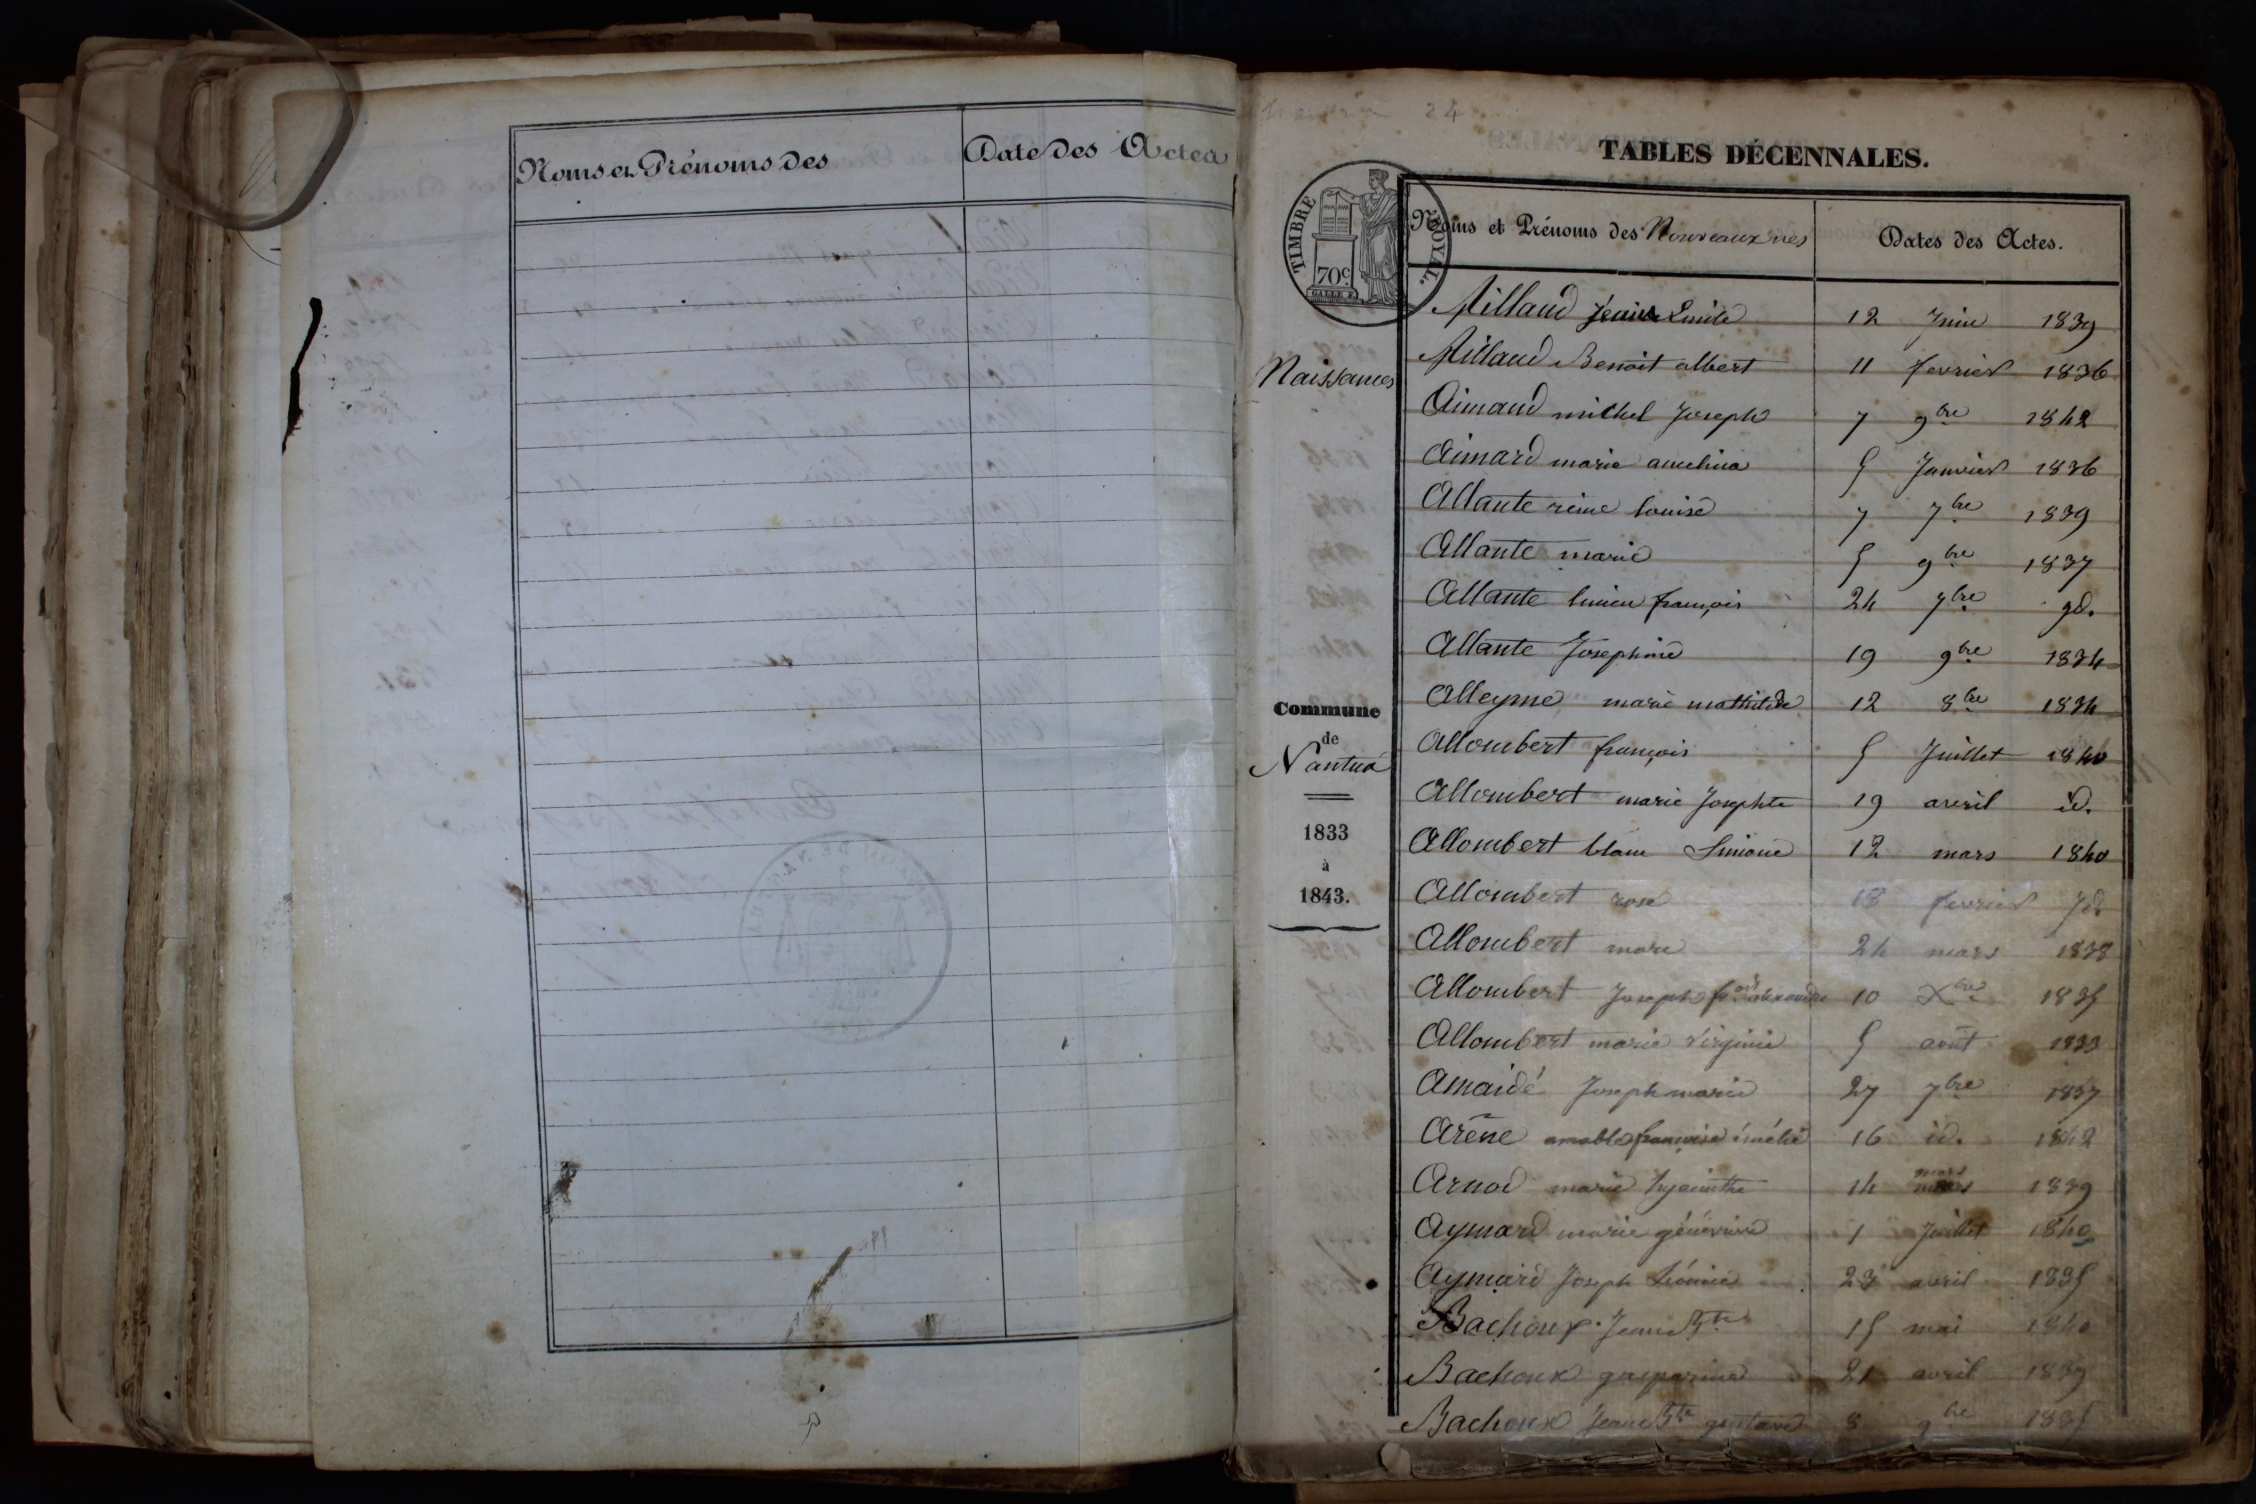 Noms et Prénoms des
Date des Actes
24
TABLES DÉCENNALES.
TIMBRE ROYAL.
70c
Noms et Prénoms des Nouveaux nés
Dates des Actes.
Naissances
Commune
de
Nantua
1833
à
1843.
Aillaud Emile 12 Juin 1839
Aillaud Benoit albert 11 fevrier 1836
Aimard michel Joseph 7 9bre 1842
Aimard marie 5 Janvier 1836
Allante reine louise 7 7bre 1839
Allante marie 5 9bre 1837
Allante françois 24 7bre id.
Allante Josephine 19 9bre 1834
Alleyme marie mathilde 12 8bre 1834
Allombert françois 5 Juillet 1840
Allombert marie Josephte 19 avril id.
Allombert blanc Simone 12 mars 1840
Allombert rose 18 fevrier id.
Allombert marie 24 mars 1838
Allombert Joseph fçois alexandre 10 Xbre 1835
Allombert marie virginie 5 août 1833
Amaidé Joseph marie 27 7bre 1837
Arène amable françoise émélie 16 id. 1842
Arnod marie hyacinthe 14 mars 1839
Aymard marie généviève 1 Juillet 1840
Aymard Joseph 23 avril 1835
Bachoux Jean Bte 15 mai 1840
Bachoux gasparine 21 avril 1839
Bachoux Jean Bte gustave 8 9bre 1835